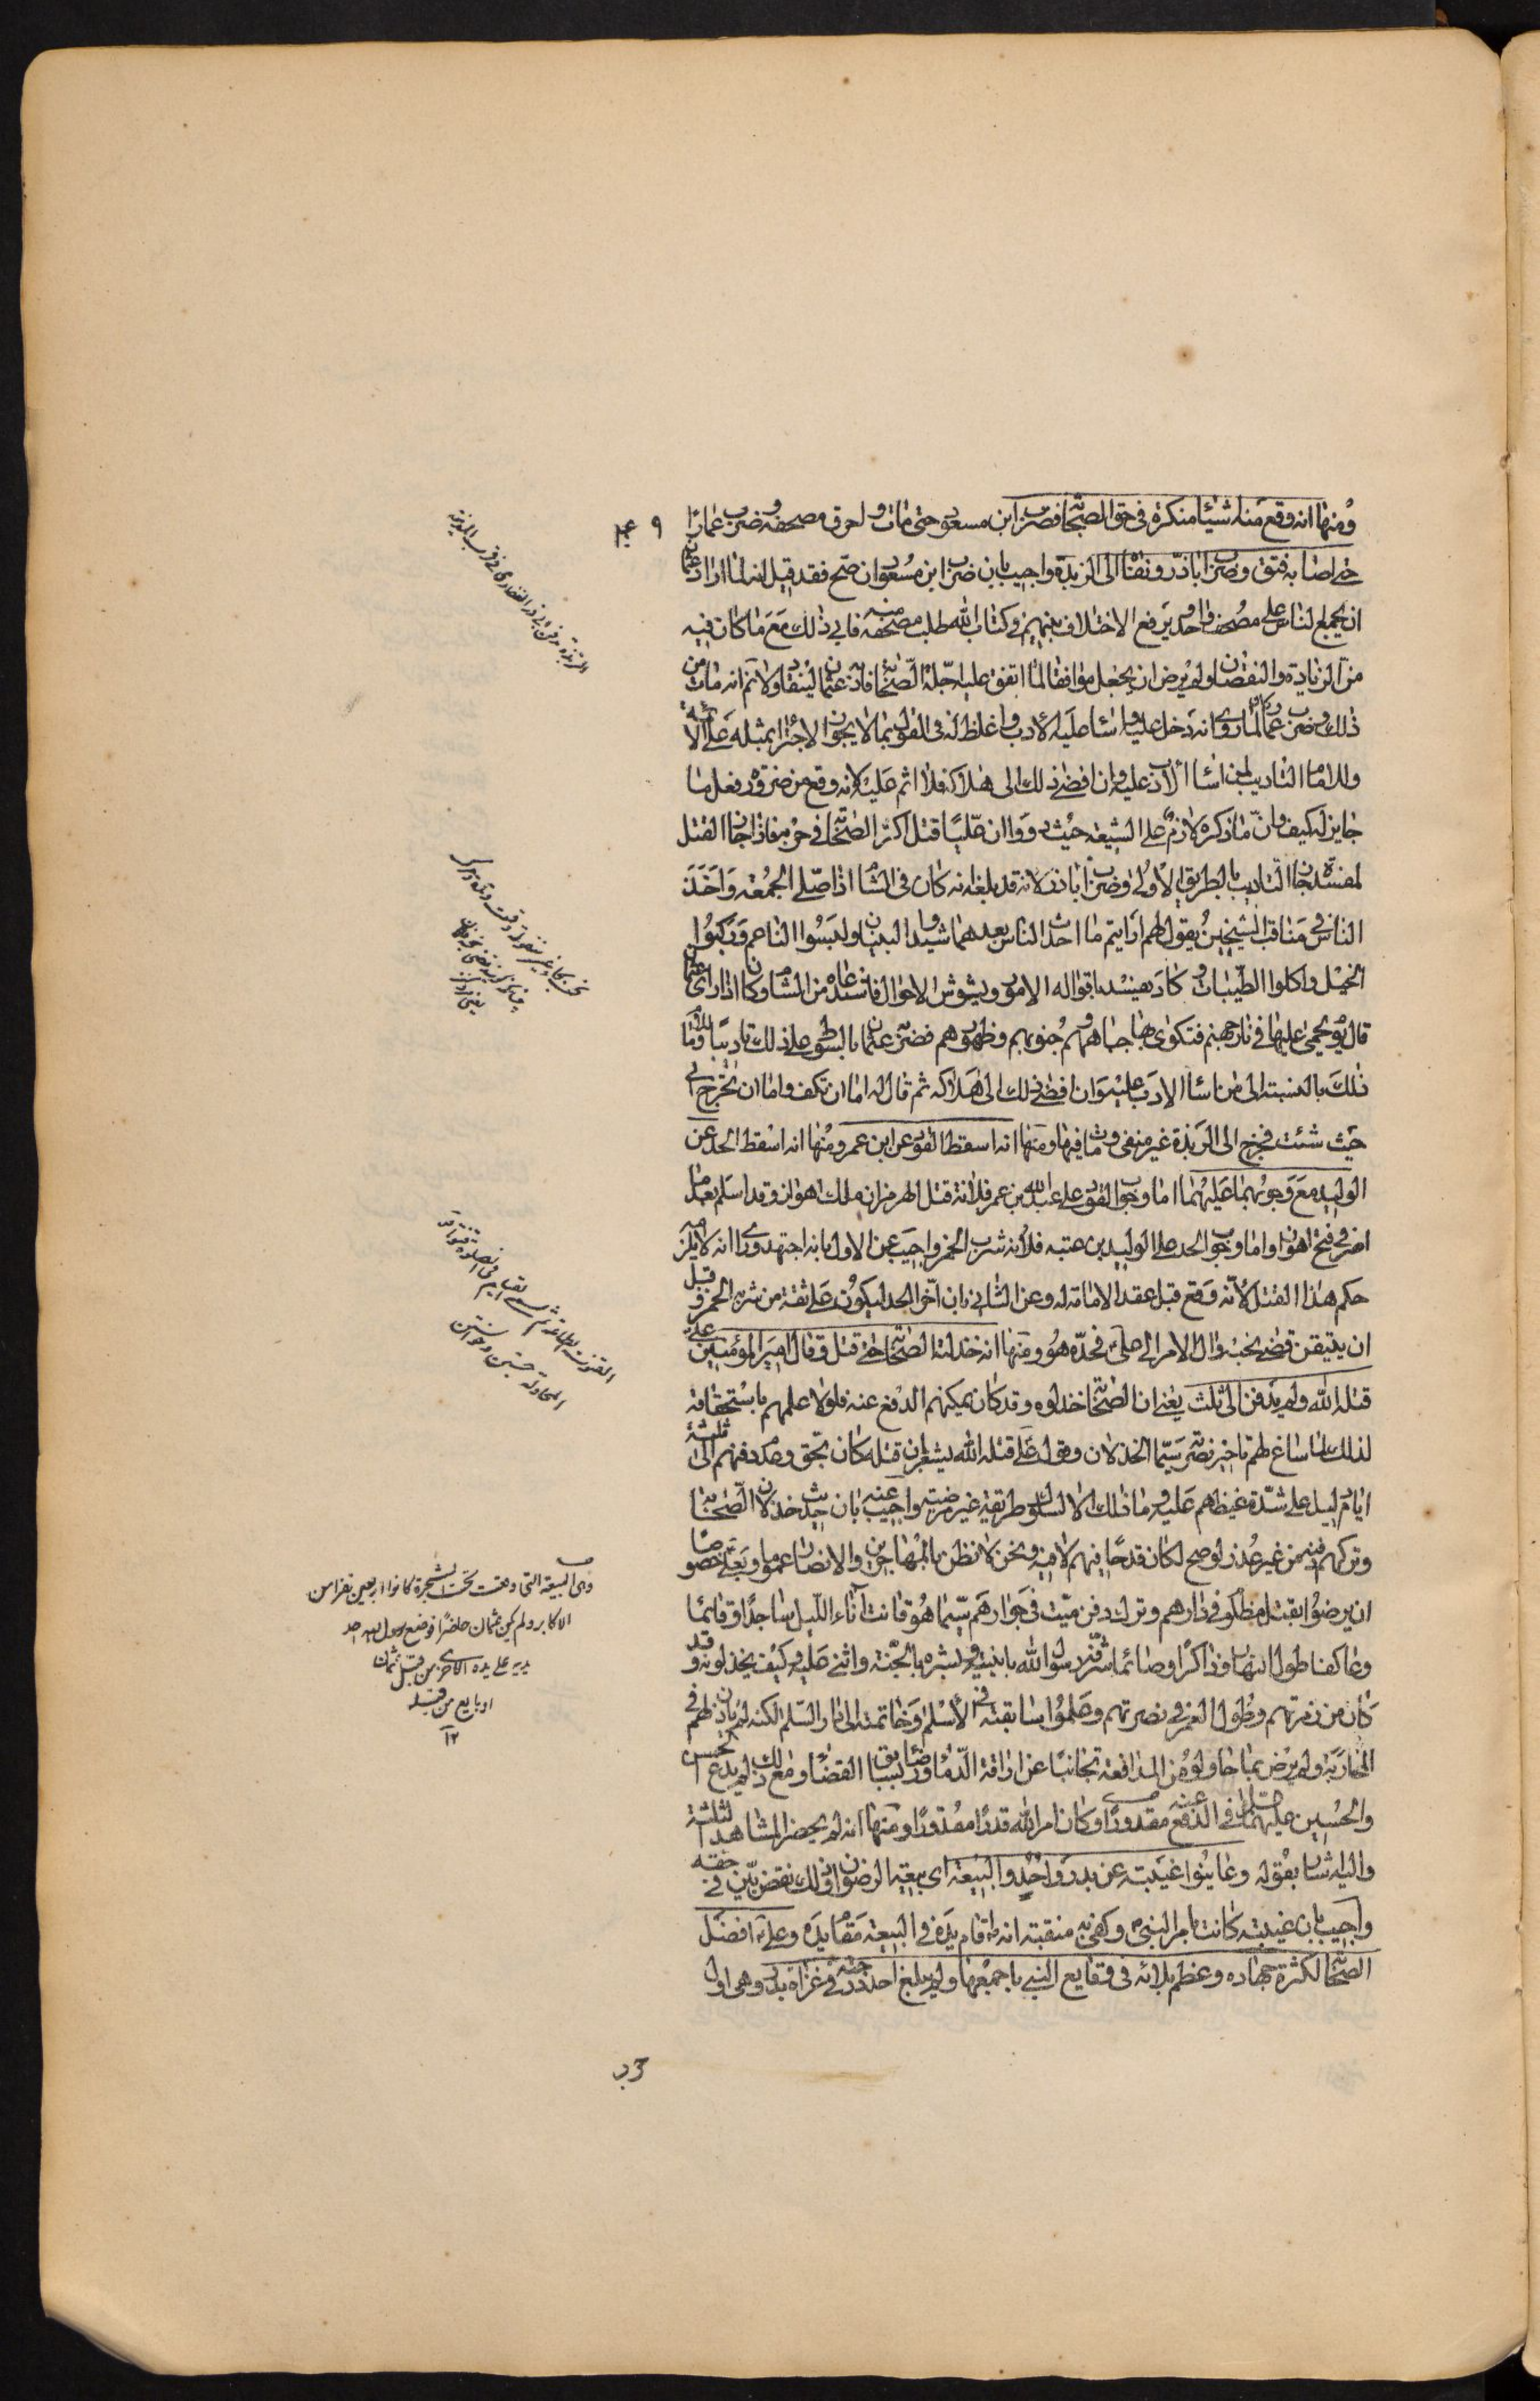 ومنها انه وقع منه اشياء منكرة في حق الصحابة فضرب ابن مسعود حتى مات واحرق مصحفه وضرب عمارا
حتى اصابه فتق وضرب اباذر ونفاه الى الربذة واجيب بان ضرب ابن مسعود ان صح فقد قيل انه لما اراد عثمان
ان يجمع الناس على مصحف واحد ويرفع الاختلاف بينهم في كتاب الله طلب مصحفه منه فابى ذلك مع ما كان فيه
من الزيادة والنقصان ولم يرض ان يجعل موافقا لما اتفق عليه اجلة الصحابة فادبه عثمان لينقاد ولا نم انه مات من
ذلك وضرب عمار لما روى انه دخل عليه واساء عليه الادب واغلظ له في القول بما لا يجوز الاجتراء بمثله على الائمة
وللامام التاديب لمن اساء الادب عليه وان افضى ذلك الى هلاكه فلا اثم عليه لانه وقع من ضرورة فعل ما
جايز له كيف وان ما ذكره لازم على الشيعة حيث رووا ان عليا قتل اكثر الصحابة في حربه فاذا جاز القتل
لمفسدة جاز التاديب بالطريق الاولى وضرب اباذر لانه قد بلغه انه كان في الشام اذا صلى الجمعة واخذ
الناس في مناقب الشيخين يقول لهم ارايتم ما احدث الناس بعدهما شيدوا البنيان ولبسوا الناعم وركبوا
الخيل واكلوا الطيبات وكاد يفسد باقواله الامور ويشوش الاحوال فاستدعاه من الشام وكان اذا راى عثمان
قال يوم يحمى عليها في نار جهنم فتكوى بها جباههم وجنوبهم وظهورهم فضربه عثمان بالسوط على ذلك تاديبا وللامام
ذلك بالنسبة الى من اساء الادب عليه وان افضى ذلك الى هلاكه ثم قال له اما ان تكف واما ان تخرج الى
حيث شئت فخرج الى الربذة غير منفي ومات فيها ومنها انه اسقط القود عن ابن عمر ومنها انه اسقط الحد عن
الوليد مع وجوبهما عليهما اما وجوب القود على عبيد الله بن عمر فلانه قتل الهرمزان ملك اهواز وقد اسلم بعد ما
اسر في فتح اهواز واما وجوب الحد على الوليد بن عتبه فلانه شرب الخمر واجيب عن الاول بانه اجتهد وراى انه لا يلزمه
حكم هذا القتل لانه وقع قبل عقد الامامة له وعن الثاني بان اخر الحد ليكون على ثقة من شربه الخمر وقبل
ان يتيقن قضى نحبه وآل الامر الى علي فحده هو ومنها انه خذلته الصحابة حتى قتل وقال امير المؤمنين علي
قتله الله ولم يدفن الى ثلث يعني ان الصحابة خذلوه وقد كان يمكنهم الدفع عنه فلولا علمهم باستحقاقه
لذلك لما ساغ لهم تاخير نصرته سيما الخذلان وقول علي قتله الله يشعر بان قتله كان بحق وعدم دفنهم الى ثلثة
ايام دليل على شدة غيظهم عليه وما ذلك الا لسلوك طريقة غير مرضية واجيب عنه بان حديث خذلان الصحابة
وتركهم دفنه من غير عذر لو صح لكان قدحا فيهم لا فيه ونحن لا نظن بالمهاجرين والانصار عموما وبعلي خصوصا
ان يرضوا بقتل مظلوم في دارهم وترك دفن ميت في جوارهم سيما هو قانت آناء الليل ساجدا وقائما
وعاكفا طول النهار وذاكرا وصائما شرفه رسول الله بابنتيه وبشره بالجنة واثنى عليه وكيف يخذلونه وقد
كان من زمرتهم وطول العمر في نصرتهم وعلموا سابقته في الاسلام وخاتمته الى دار السلام لكنه لم ياذن لهم في
المحاربة ولم يرض بما حاولوه من المدافعة تجانبا عن اراقة الدماء ورضا بسابق القضاء ومع ذلك لم يدع الحسن
والحسين عليهما السلم في الدفع عنه مقدورا وكان امر الله قدرا مقدورا ومنها انه لم يحضر المشاهد الثلثة
واليه اشار بقوله وعابوا غيبته عن بدر واحد والبيعة اى بيعة الرضوان وذلك نقض بين في حقه
واجيب بان غيبته كانت بامر النبي وكفى به منقبة انه اقام يده في البيعة مقام يده وعلي افضل
الصحابة لكثرة جهاده وعظم بلائه في وقايع النبي باجمعها ولم يبلغ احد درجته في غزاة بدر وهي اول
وهى البيعة التى وقعت تحت الشجرة كانوا اربعين نفرا من
الاكابر ولم يكن عثمان حاضرا فوضع رسول الله احد
يديه على يده الاخرى من قبل عثمان
او بايع من قبله
١٢